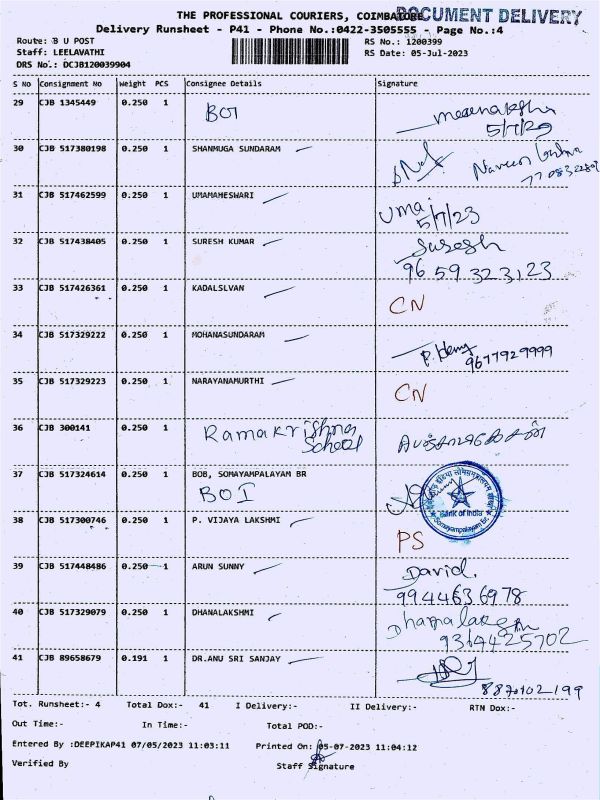 THE PROFESSIONAL COURIERS, COIMBATORE
DOCUMENT DELIVERY
Delivery Runsheet - P41 - Phone No.:0422-3505555 - Page No.:4
Route: B U POST RS No.: 1200399
Staff: LEELAVATHI RS Date: 05-Jul-2023
DRS No.: DCJB120039904
S No Consignment No Weight PCS Consignee Details Signature
29 CJB 1345449 0.250 1 BOI Meenaksha
5/7/23
30 CJB 517380198 0.250 1 SHANMUGA SUNDARAM Naveen
31 CJB 517462599 0.250 1 UMAMAHESWARI Uma
5/7/23
32 CJB 517438405 0.250 1 SURESH KUMAR Suresh
96 59 323123
33 CJB 517426361 0.250 1 KADALSLVAN CN
34 CJB 517329222 0.250 1 MOHANASUNDARAM
9677929999
35 CJB 517329223 0.250 1 NARAYANAMURTHI CN
36 CJB 300141 0.250 1 Ramakrishna
School
37 CJB 517324614 0.250 1 BOB, SOMAYAMPALAYAM BR
BOI
Bank of India
Somayampalayam Br.
38 CJB 517300746 0.250 1 P. VIJAYA LAKSHMI PS
39 CJB 517448486 0.250 1 ARUN SUNNY David.
9944636978
40 CJB 517329079 0.250 1 DHANALAKSHMI
9344425702
41 CJB 89658679 0.191 1 DR.ANU SRI SANJAY
Tot. Runsheet:- 4 Total Dox:- 41 I Delivery:- II Delivery:- RTN Dox:-
Out Time:- In Time:- Total POD:-
Entered By :DEEPIKAP41 07/05/2023 11:03:11 Printed On: 05-07-2023 11:04:12
Verified By Staff Signature